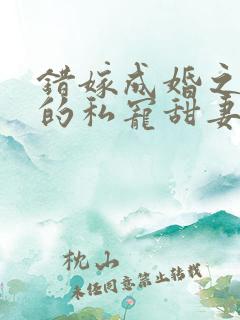 錯嫁成婚之
的私寵甜妻
枕山
未經同意禁止轉載